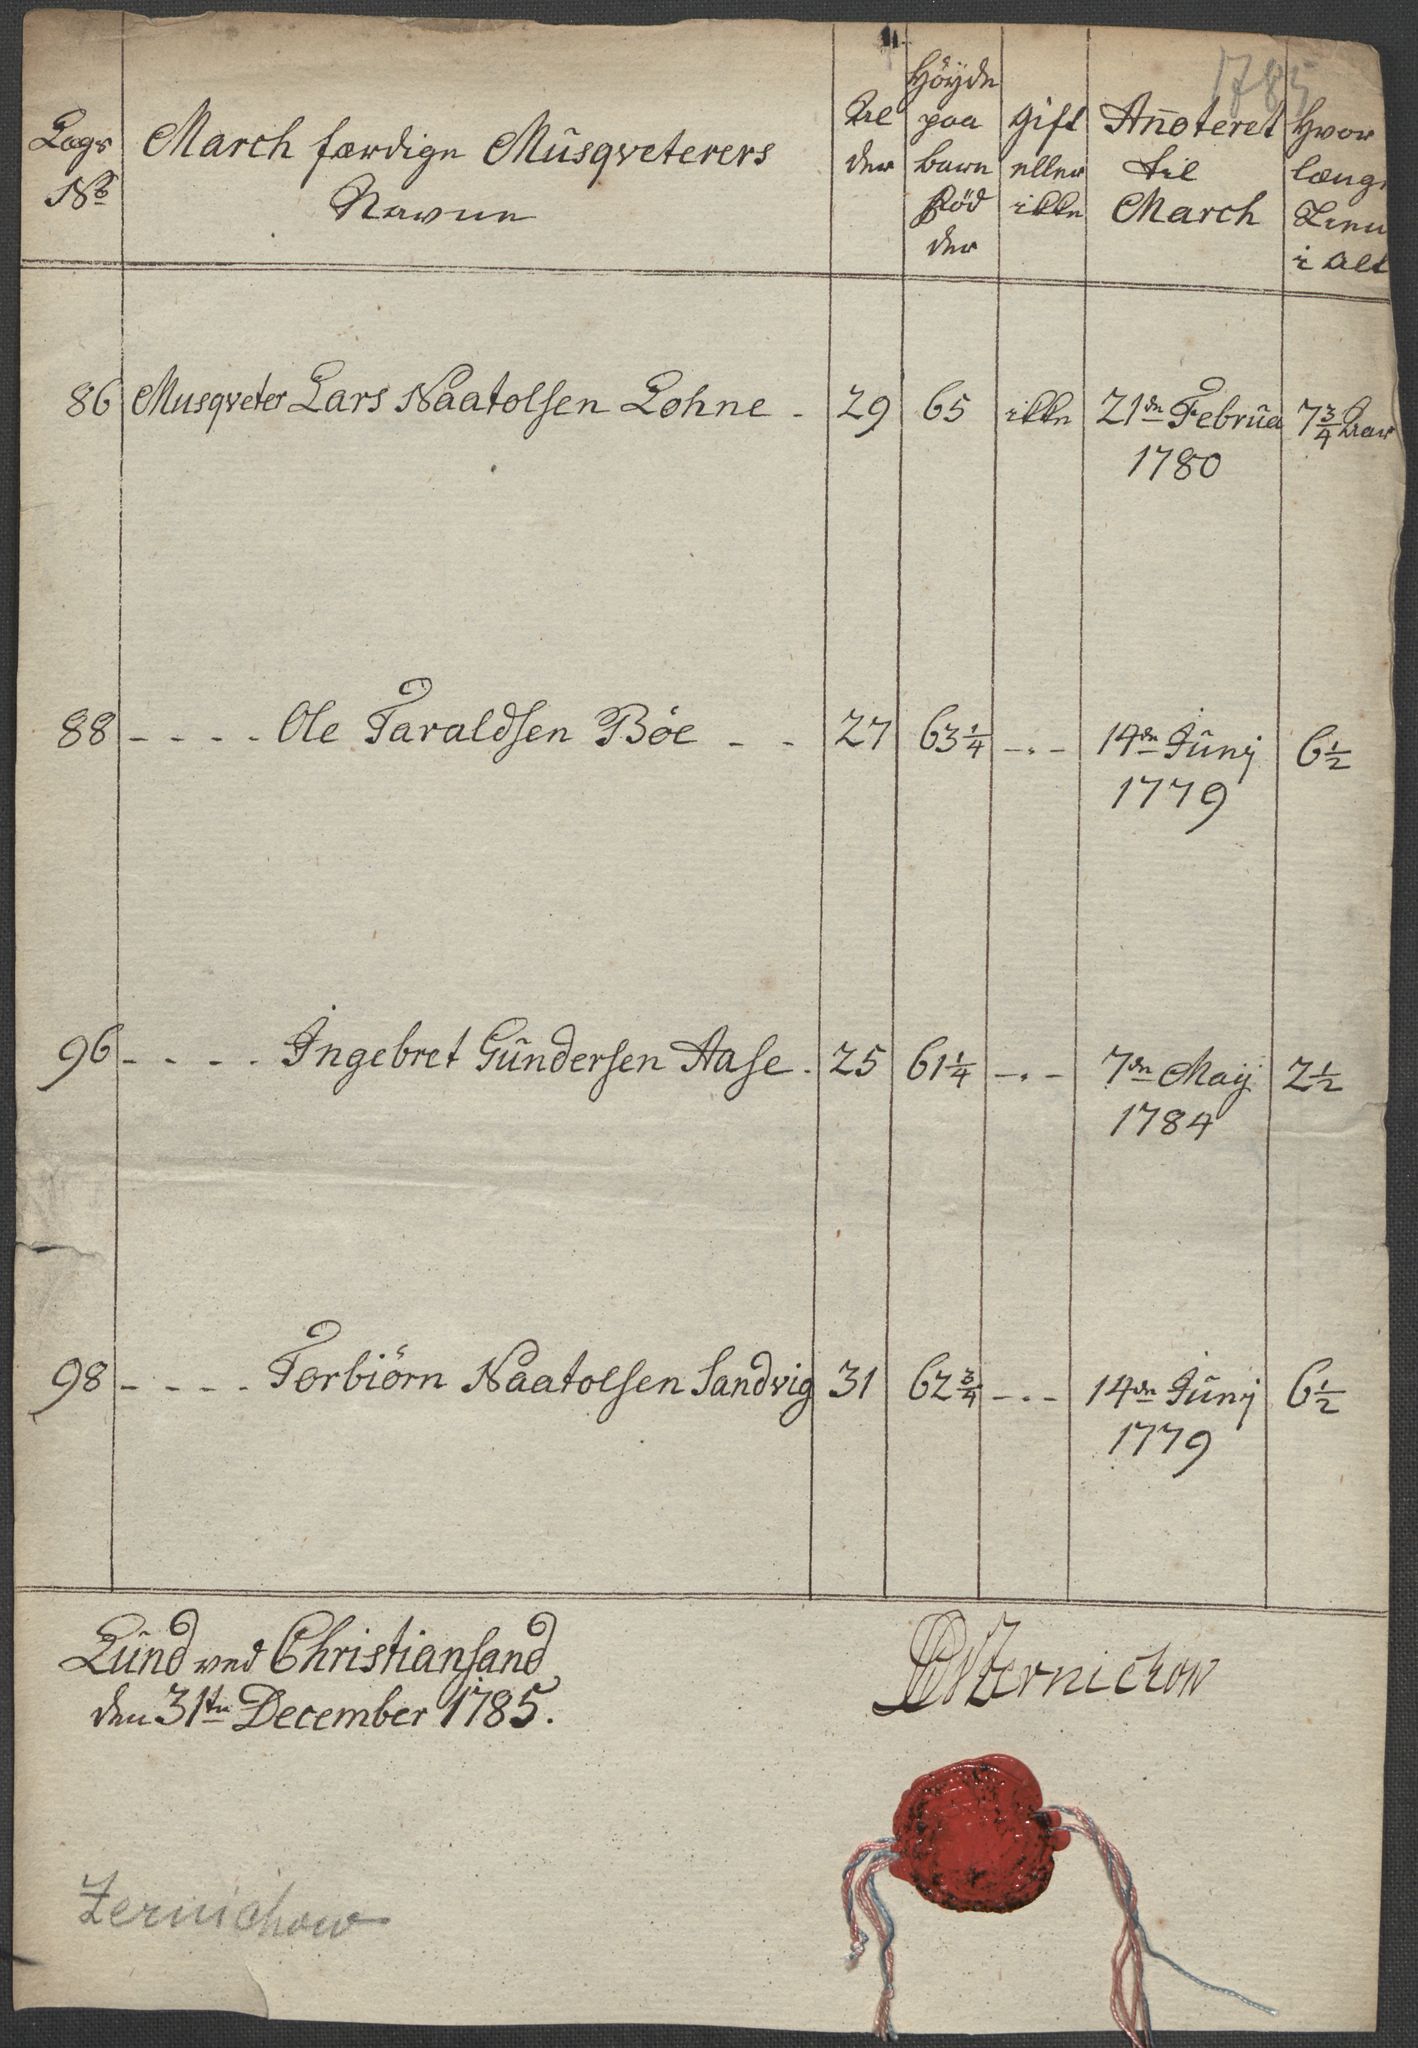 1785
Lægs No
March færdige Musqveterers Navne
Al der
Høyde paa bare Fød der
gift eller ikke
Anoteret til March
Hvor længe Tient i Alt
86 Musqveter Lars Naatolsen Lohne - 29 65 ikke 21de Februa 7 3/4 Aar
1780
88 - - - - Ole Taraldsen Böe - - 27 63 1/4 -.- 14de Junij 6 1/2
1779
96 - - - - Ingebret Gundersen Aase . 25 61 1/4 -.- 7de Maij 2 1/2
1784
98 - - - - Torbiörn Naatolsen Sandvig 31 62 3/4 -.- 14de Junij 6 1/2
1779
Lund ved Christiansand
den 31te December 1785.
Zernichow
Zernichow